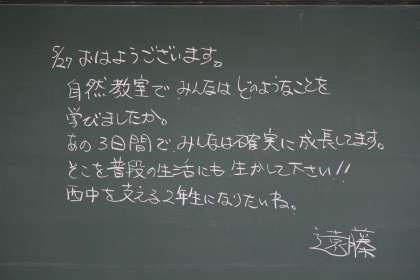 5/27 おはようございます。
自然教室で みんなは どのようなことを
学びましたか。
あの3日間で、みんなは確実に成長してます。
そこを普段の生活にも 生かして下さい!!
西中を支える2年生になりたいね。
遠藤